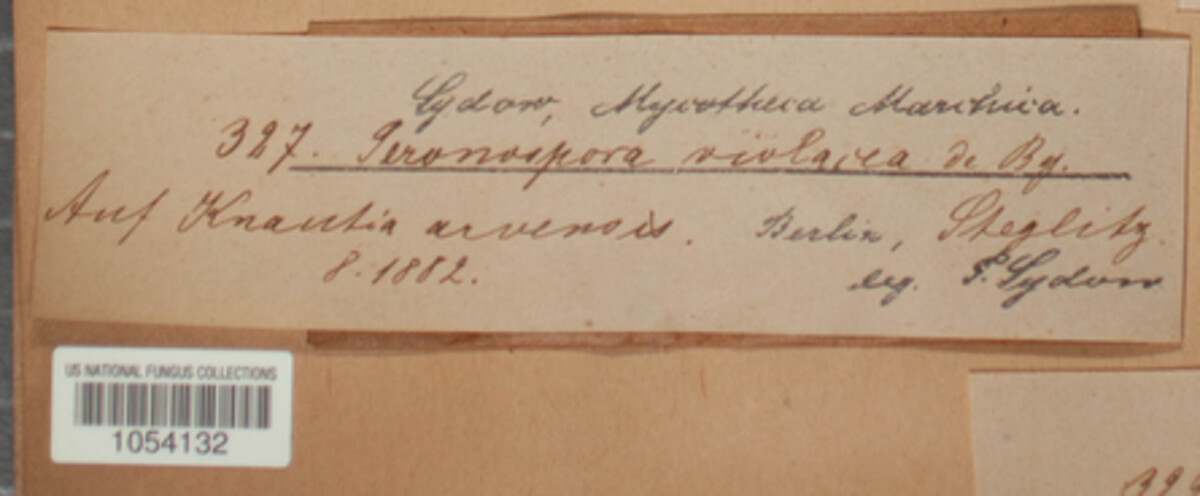 Sydow, Mycotheca Marchica.
327. Peronospora violacea de By.
Auf Knautia arvensis. Berlin, Steglitz.
8. 1882. leg. P. Sydow
US NATIONAL FUNGUS COLLECTIONS
1054132